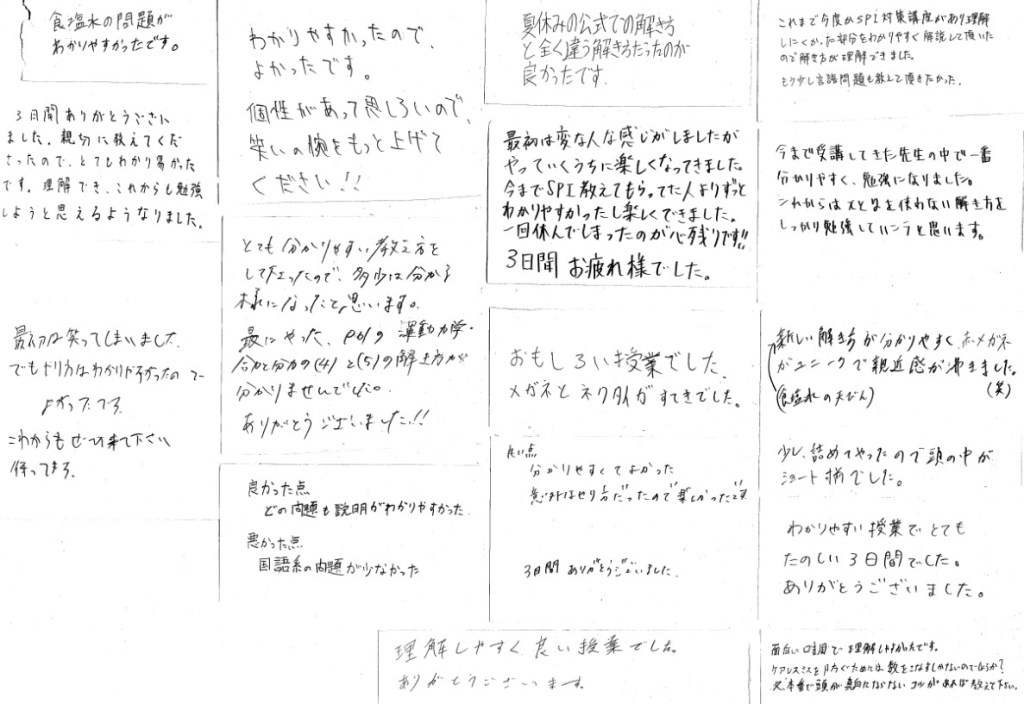 食塩水の問題が
わかりやすかったです。
3日間ありがとうござい
ました。親切に教えてくだ
さったので、とてもわかり易かった
です。理解でき、これからも勉強
しようと思えるようなりました。
最初は笑ってしまいました
でもやり方はわかりやすかったので
よかったです
これからもぜひ来て下さい
待ってます。
わかりやすかったので、
よかったです。
個性があって思しろいので、
笑いの腕をもっと上げて
ください!!
とても分かりやすい教え方を
して下さったので、多少は分かる
様になったと思います。
最にやった、P61の運動力学・
合力と分力の(4)と(5)の解き方が
分かりませんでした。
ありがとうございました!!
良かった点
どの問題も説明がわかりやすかった
悪かった点
国語系の問題が少なかった
夏休みの公式での解き方
と全く違う解き方だったのが
良かったです。
最初は変な人な感じがしましたが
やっていくうちに楽しくなってきました。
今までSPI教えてもらってた人よりずっと
わかりやすかったし楽しくできました。
一回休んでしまったのが心残りです!!
3日間 お疲れ様でした。
おもしろい授業でした。
メガネとネクタイがすてきでした。
良い点
分かりやすくてよかった
意外なやり方だったので楽しかったです
3日間ありがとうございました。
理解しやすく良い授業でした。
ありがとうございます。
これまで今度のSPI対策講座があり理解
しにくかった部分をわかりやすく解説して頂いた
ので解き方が理解できました。
もう少し言語問題も教して頂きたかった。
今まで受講してきた先生の中で一番
分かりやすく、勉強になりました。
これからはxとyを使わない解き方を
しっかり勉強していこうと思います。
新しい解き方が分かりやすく、赤メガネ
がユニークで親近感が沸きました。
(食塩水の天びん)
(笑)
少し、詰めてやったので頭の中が
ショート揃でした。
わかりやすい授業でとても
たのしい3日間でした。
ありがとうございました。
面白い口調で理解しやすかったです。
ケアレスミスを防ぐためには数をこなすしかないのでしょうか?
又、本番で頭が真白にならないコツがあれば教えて下さい。